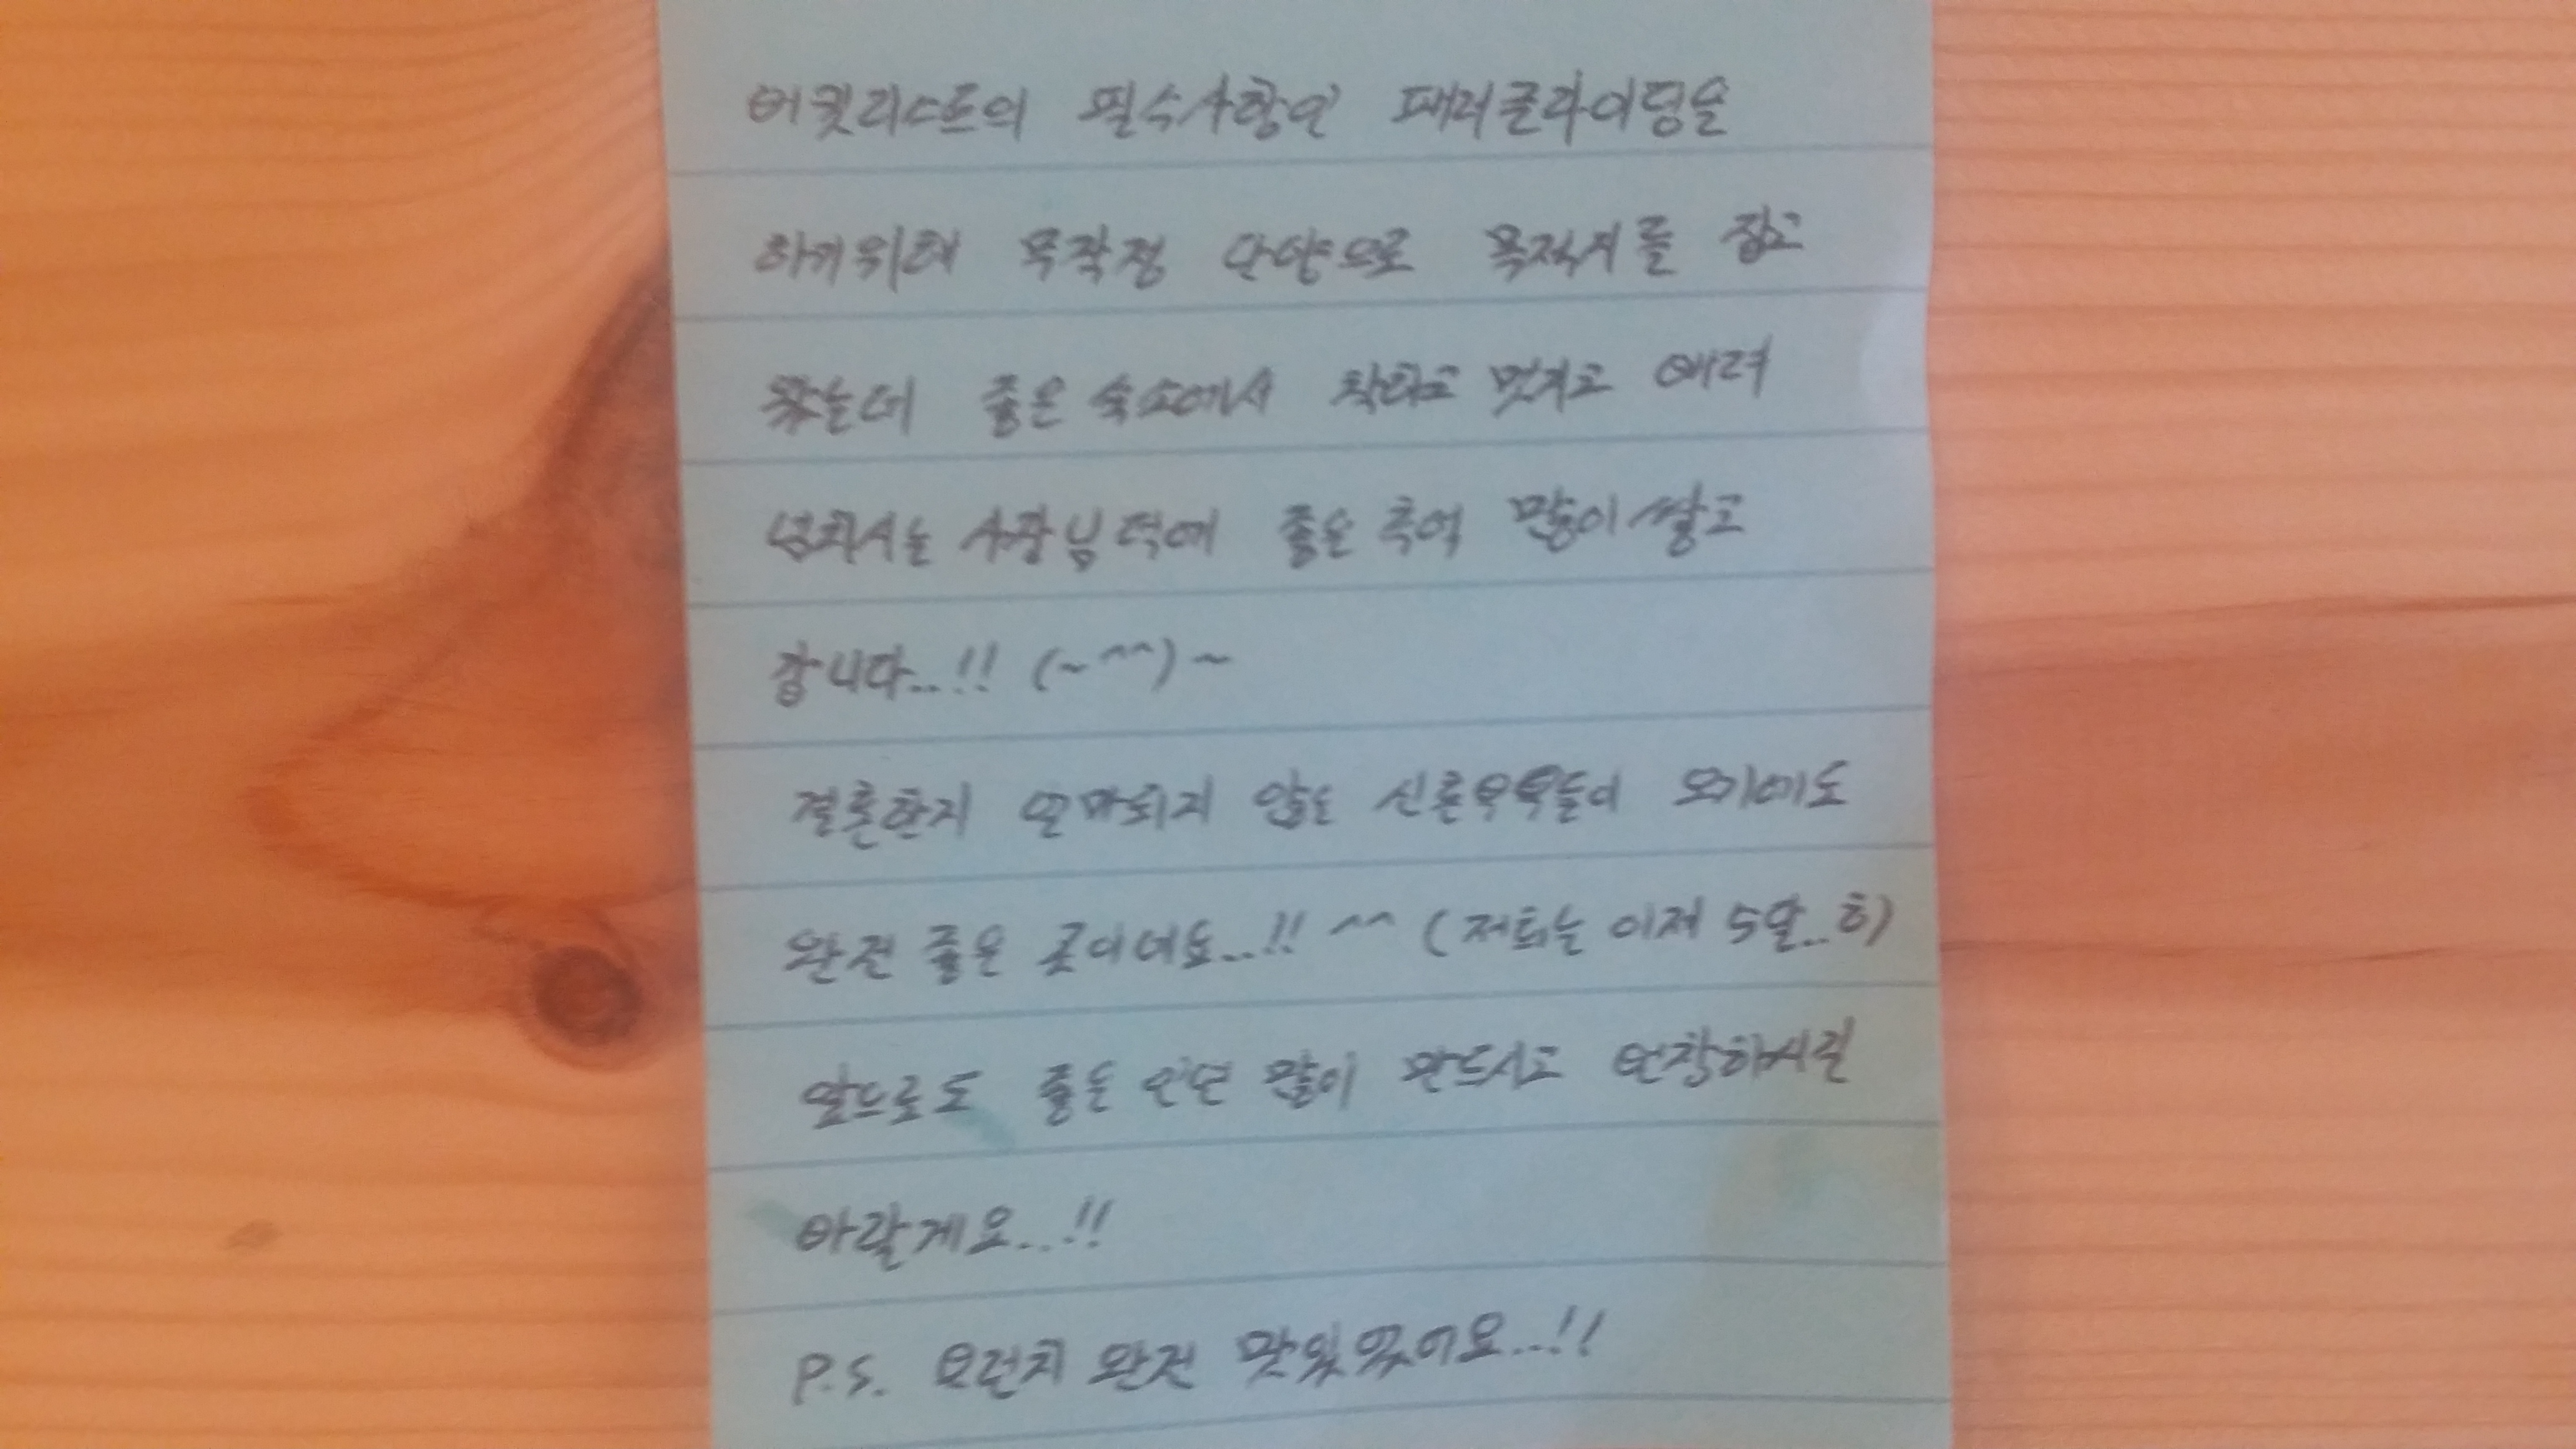 버킷리스트의 필수사항인 패러글라이딩을
하기위해 무작정 단양으로 목적지를 잡고
왔는데 좋은 숙소에서 착하고 멋지고 매력
넘치시는 사장님 덕에 좋은 추억 많이 쌓고
갑니다..!! (~^^)~
결혼한지 얼마되지 않은 신혼부부들이 오기에도
완전 좋은 곳이네요...!! ^^ (저희는 이제 5달..ㅎ)
앞으로도 좋은 인연 많이 만드시고 번창하시길
바랄게요...!!
P.S. 브런치 완전 맛있었어요...!!